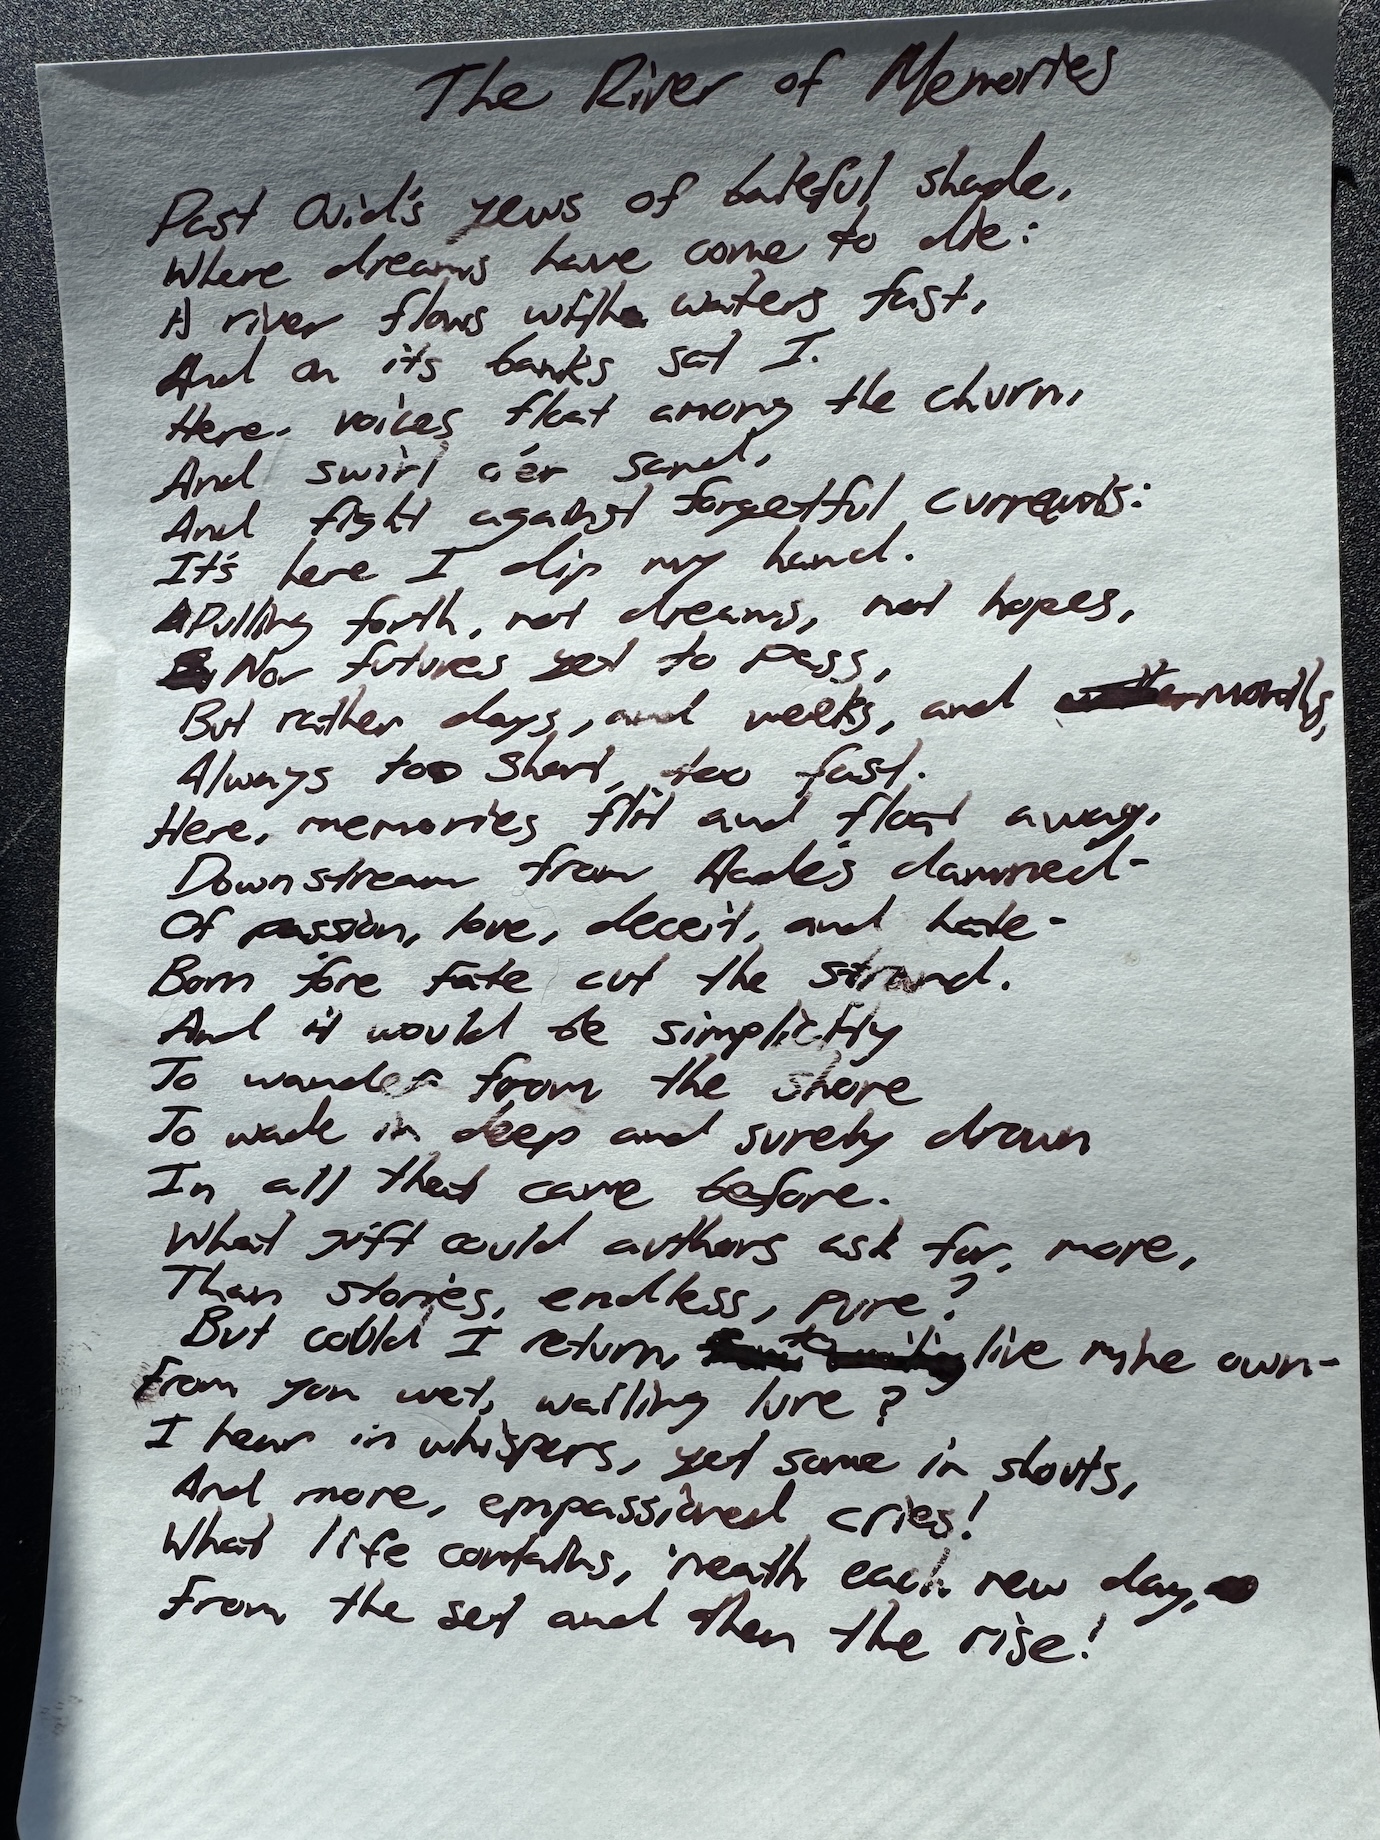 The River of Memories
Past Ovid's yews of baleful shade,
Where dreams have come to die:
A river flows with waters fast,
And on its banks sat I.
Here, voices float among the churn,
And swirl o'er sand,
And fight against forgetful currents:
It's here I dip my hand.
Pulling forth, not dreams, not hopes,
Nor futures yet to pass,
But rather days, and weeks, and months,
Always too short, too fast.
Here, memories flit and float away,
Downstream from Hade's damned-
Of passion, love, deceit, and hate-
Born 'fore Fate cut the strand.
And it would be simplicity
To wander from the shore
To wade in deep and surely drown
In all that came before.
What gift could authors ask for, more,
Than stories, endless, pure?
But could I return, live mine own-
From yon wet, wailing lure?
I hear in whispers, yet some in shouts,
And more, empassioned cries!
What life contains, 'neath each new day,
From the set and then the rise!